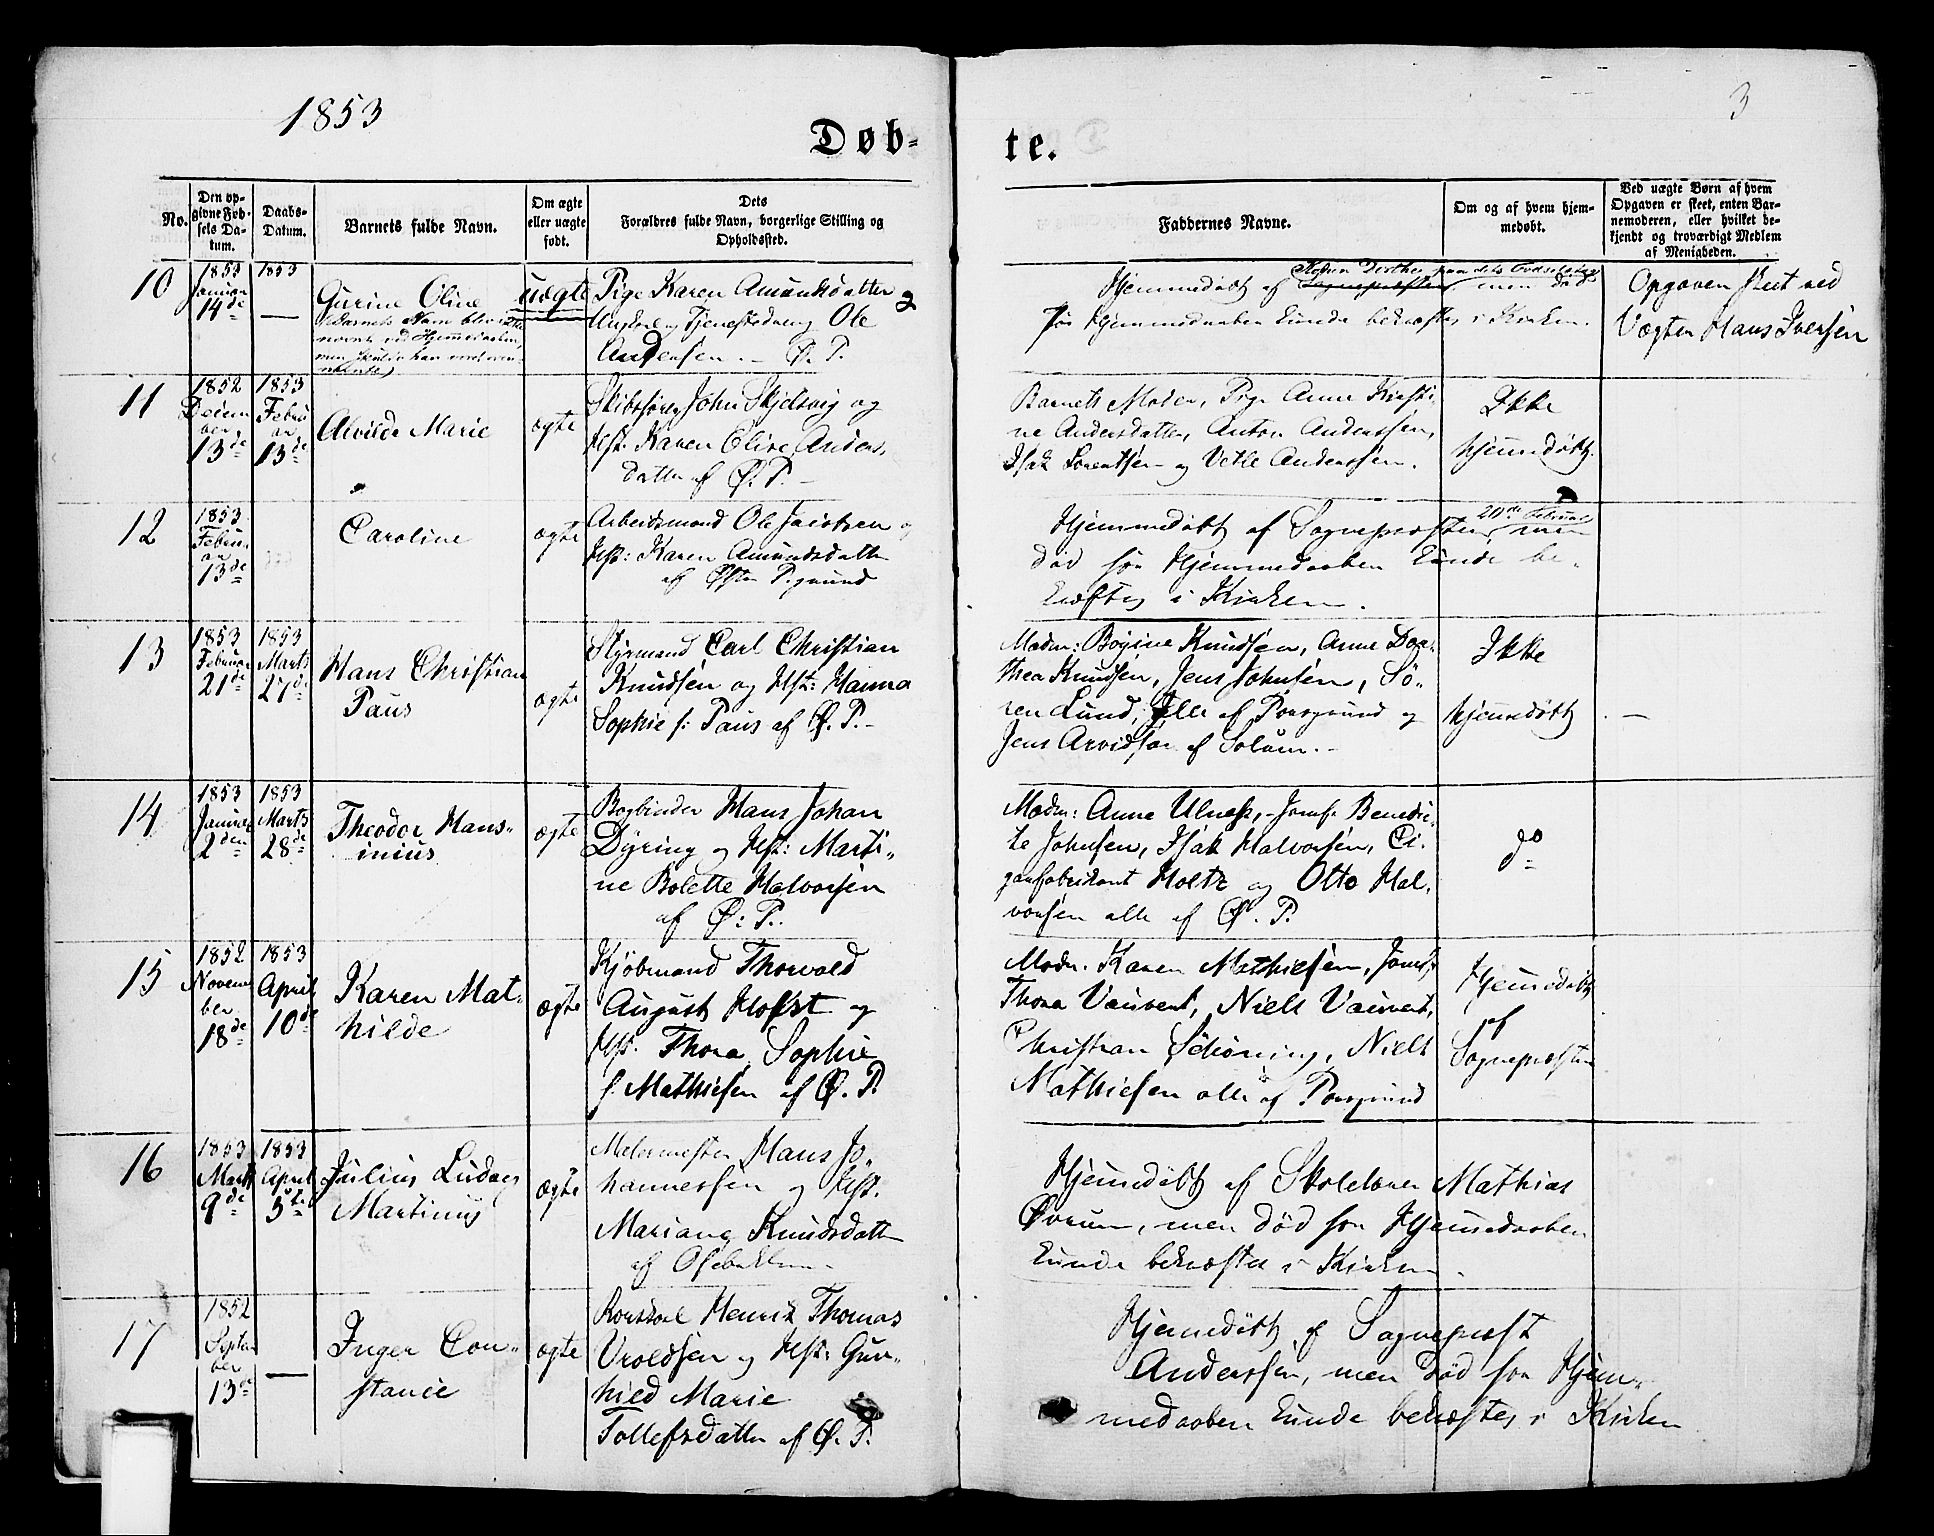 1853
3
Døb-
te.
No.
Den op-
givne Fød-
sels Da-
tum.
Daabs-
Datum.
Barnets fulde Navn.
Om ægte
eller uægte
født.
Dets
Forældres fulde Navn, borgerlige Stilling og
Opholdssted.
Faddernes Navne.
Om og af hvem hjem-
medøbt.
Ved uægte Børn af hvem
Opgaven er skeet, enten Bar-
nemoderen, eller hvilket be-
kjendt og troværdigt Medlem
af Menigheden.
10
1853
Januar
14de
1853
—
Gurine Oline
Barnets Navn blev ikke
nævnt ved Hjemmedaaben,
men skulde han
uægte
Pige Karen Amundsdatter
Ungkarl og Tjenestedreng Ole 2
Andersen. - Ø. P.
Hjemmedøbt af Sognepræsten, men død
før Hjemmedaaben kunde bekræftes i Kirken.
Opgaven skeet ved
Vægter Hans Iversen
11
1852
Decem
ber
13de
1853
Febru
ar
13de
Alvilde Marie
ægte
Skibsfører John Skjelsvig og
Hst. Karen Oline Anders,
datter af Ø. P. -
Barnets Moder, Pige Anne Kirsti-
ne Andersdatter, Anton Anderssen,
Isak Lorentsen og Vetle Anderssen.
Ikke
hjemmedøbt.
12
1853
Febru
ar
13de
Caroline
ægte
Arbeidsmand Ole Jacobsen og
Hst: Karen Amundsdatter
af Øster P.grund
20de Februar
Hjemmedøbt af Sognepræsten, men
død før Hjemmedaaben kunde be-
kræftes i Kirken.
13
1853
Februar
21de
1853
Marts
27de
Hans Christian
Paus
ægte
Styrmand Carl Christian
Knudsen og Hst: Hanna
Sophie f: Paus af Ø. P. -
Madm: Bogine Knudsen, Anne Dor-
thea Knudsen, Jens Johnsen, Sö-
ren Lund, Alle af Porsgrund og
Jens Arvidsen af Solum. -
Ikke
hjemmedøbt
. —
14
1853
Januar
2den
1853
Marts
28de
Theodor Hans-
inius
ægte
Bogbinder Hans Johan
Dyring og Hst: Marti-
ne Bolette Halvorsen
af Ø: P.
Madm: Anne Ulness, Jomf. Benedic-
te Johnsen, Isak Halvorsen, Ci-
garfabrikant Holtz og Otto Hal-
vorsen alle af Ø. P.
do
15
1852
Novem
ber
18de
1853
April
10de
Karen Mat-
hilde
ægte
Kjöbmand Thorvald
August Holst og
Hst. Thora Sophie
f. Mathiesen af Ø. P.
Madm. Karen Mathiesen, Jomf.
Thora Vauvert, Niels Vauvert,
Christian Schöning, Niels
Mathiesen alle af Porsgrund
Hjemmedøbt
af
Sognepræsten
16
1853
Marts
9de
1853
April
5te
Julius Ludvig
Martinius
ægte
Malermester Hans Jo-
hannessen og Hst.
Mariane Knudsdatter
af Osebakken.
Hjemmedøbt af Skolelærer Mathias
Øvrum, men død før Hjemmedaaben
kunde bekræftes i Kirken.
17
1852
Septem
ber
13de
—
Inger Con-
stance
ægte
Henrik Thomas
Vroldsen og Hst: Gun-
hild Marie
Tollefsdatter af Ø. P.
Hjemmedøbt af Sognepræst
Anderssen, men død før Hjem-
medaaben kunde bekræftes i Kirken